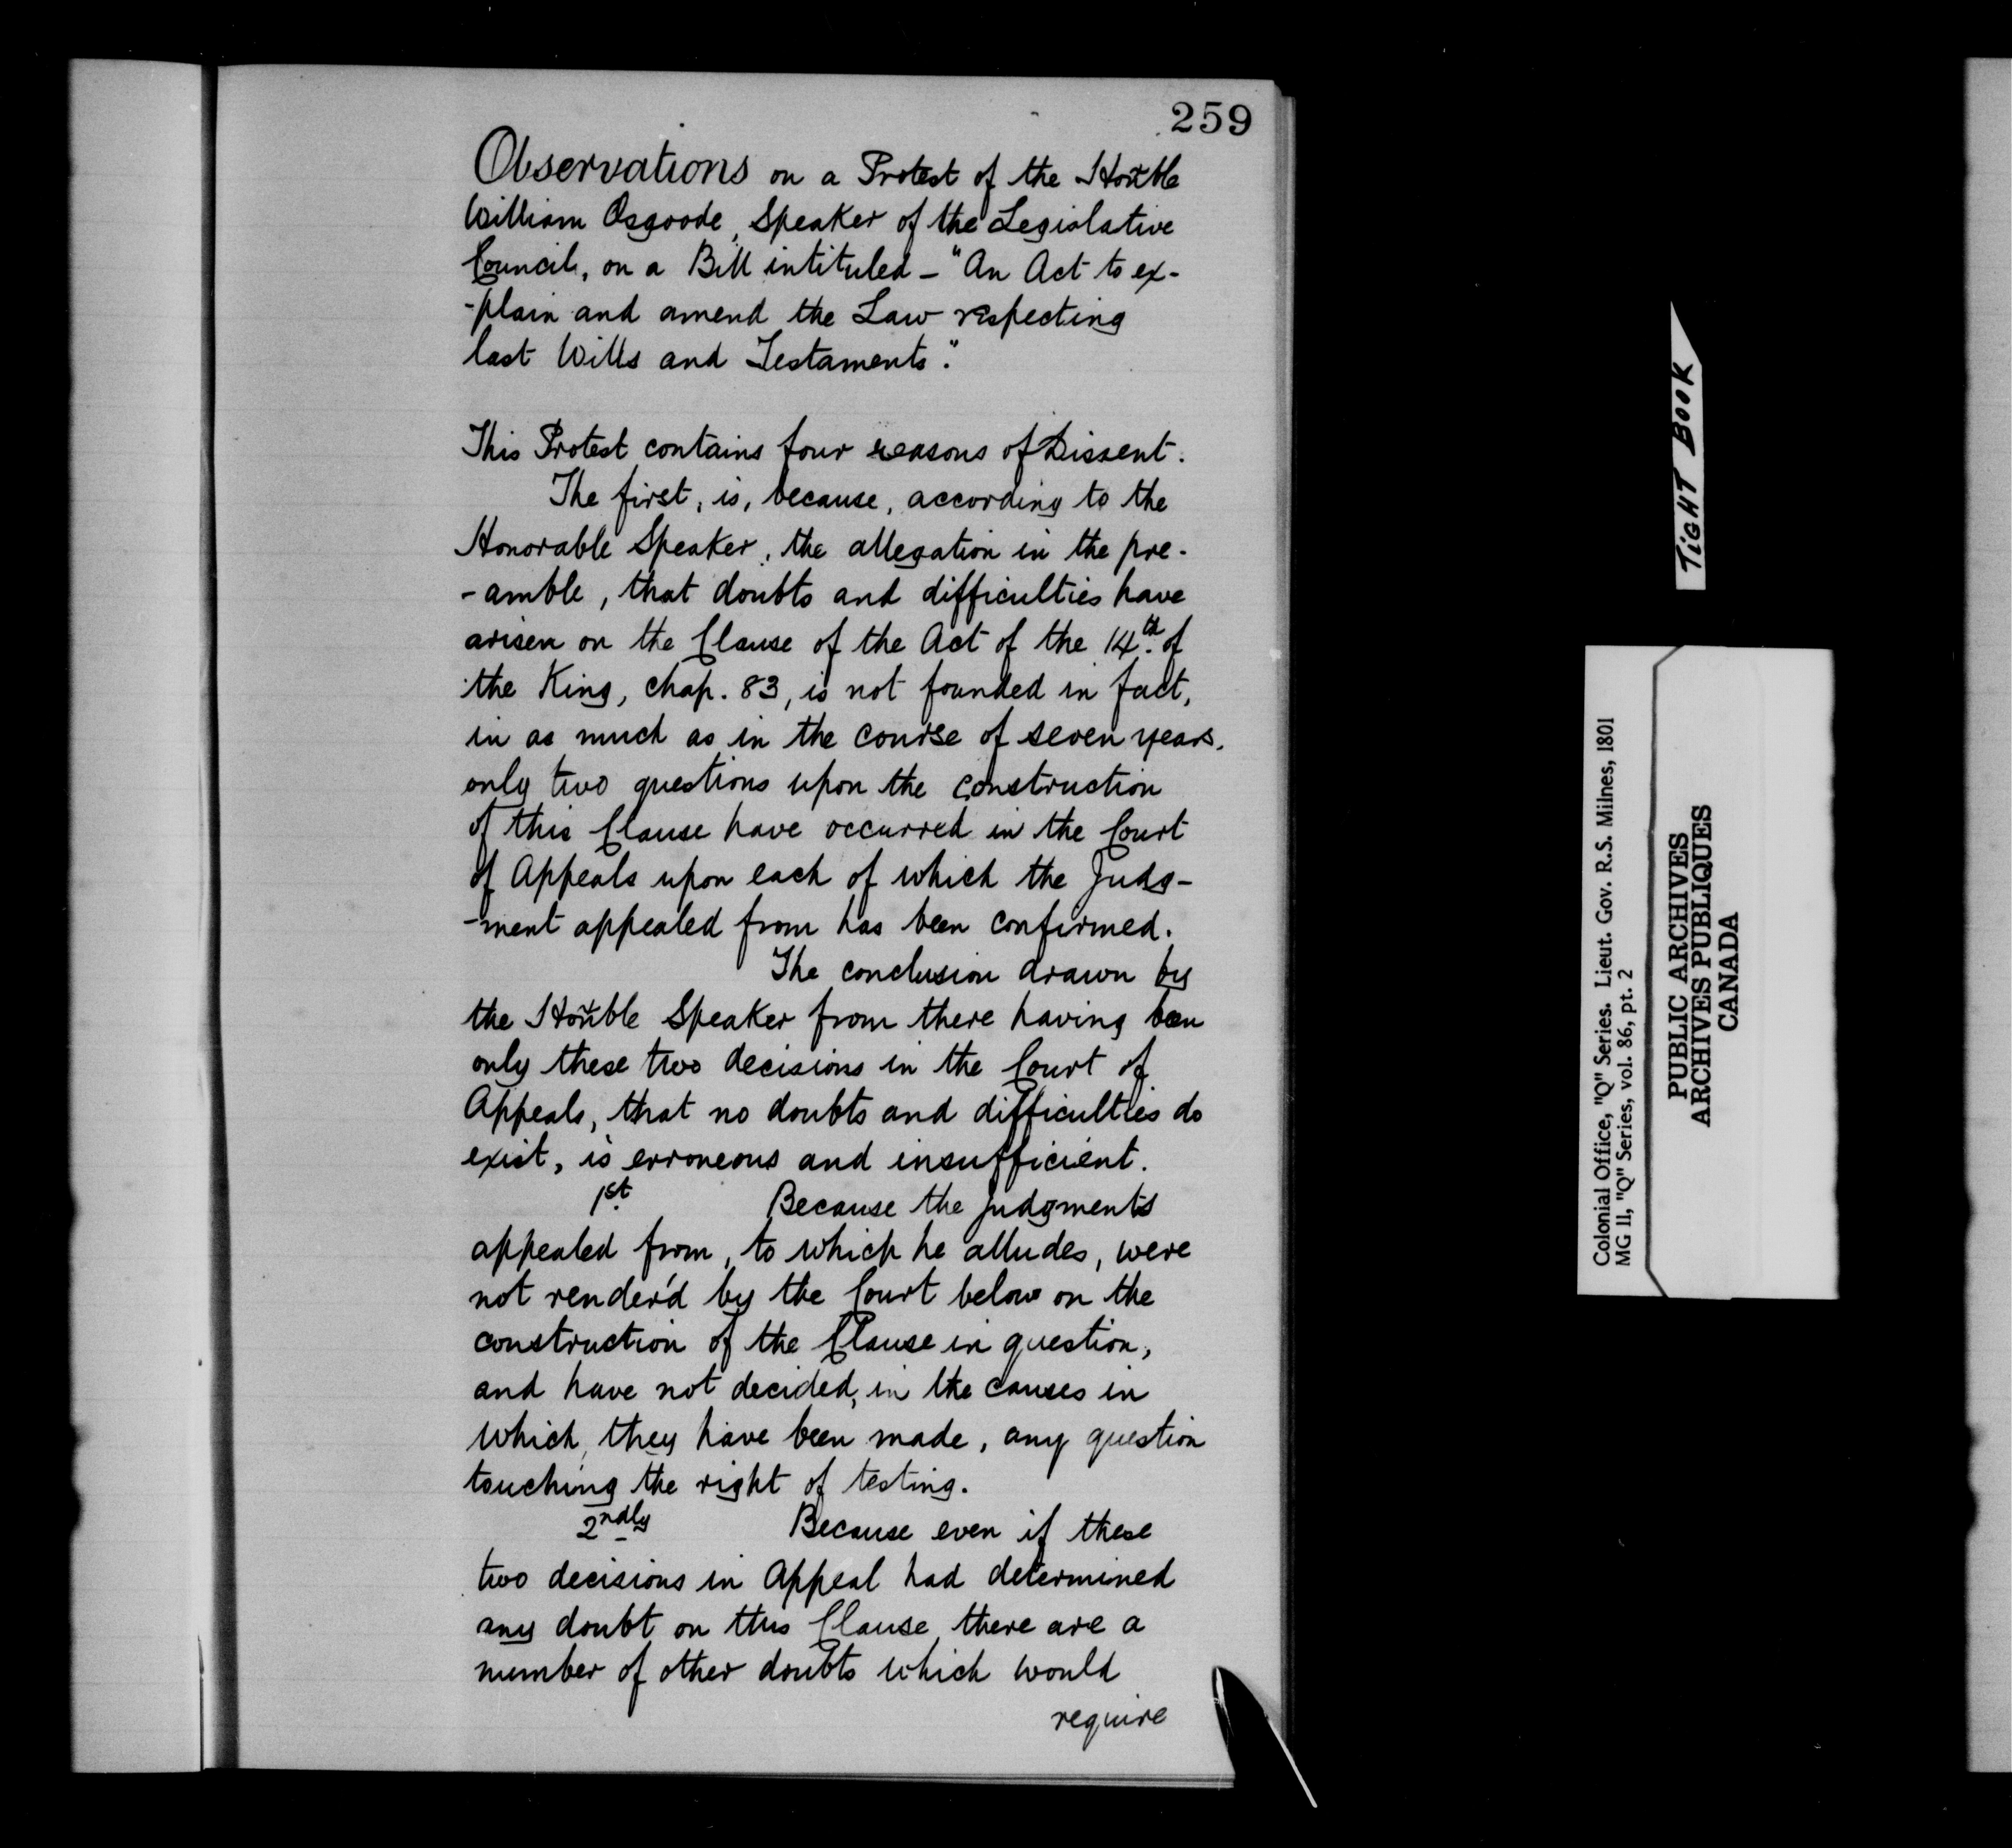 259
Observations on a Protest of the Honble
William Osgoode, Speaker of the Legislative
Council, on a Bill intituled - "An Act to ex-
-plain and amend the Law respecting
last Wills and Testaments."
This Protest contains four reasons of Dissent.
The first, is, because, according to the
Honorable Speaker, the allegation in the pre-
-amble, that doubts and difficulties have
arisen on the Clause of the Act of the 14th. of
the King, chap. 83, is not founded in fact,
in as much as in the course of seven years,
only two questions upon the construction
of this Clause have occurred in the Court
of Appeals upon each of which the Judg-
-ment appealed from has been confirmed.
The conclusion drawn by
the Honble Speaker from there having been
only these two decisions in the Court of
Appeals, that no doubts and difficulties do
exist, is erroneous and insufficient.
1st. Because the judgments
appealed from, to which he alludes, were
not render'd by the Court below on the
construction of the Clause in question,
and have not decided, in the causes in
which, they have been made, any question
touching the right of testing.
2ndly Because even if these
two decisions in Appeal had determined
any doubt on this Clause, there are a
number of other doubts which would
require
TIGHT BOOK
Colonial Office, "Q" Series. Lieut. Gov. R.S. Milnes, 1801
MG 11, "Q" Series, vol. 86, pt. 2
PUBLIC ARCHIVES
ARCHIVES PUBLIQUES
CANADA